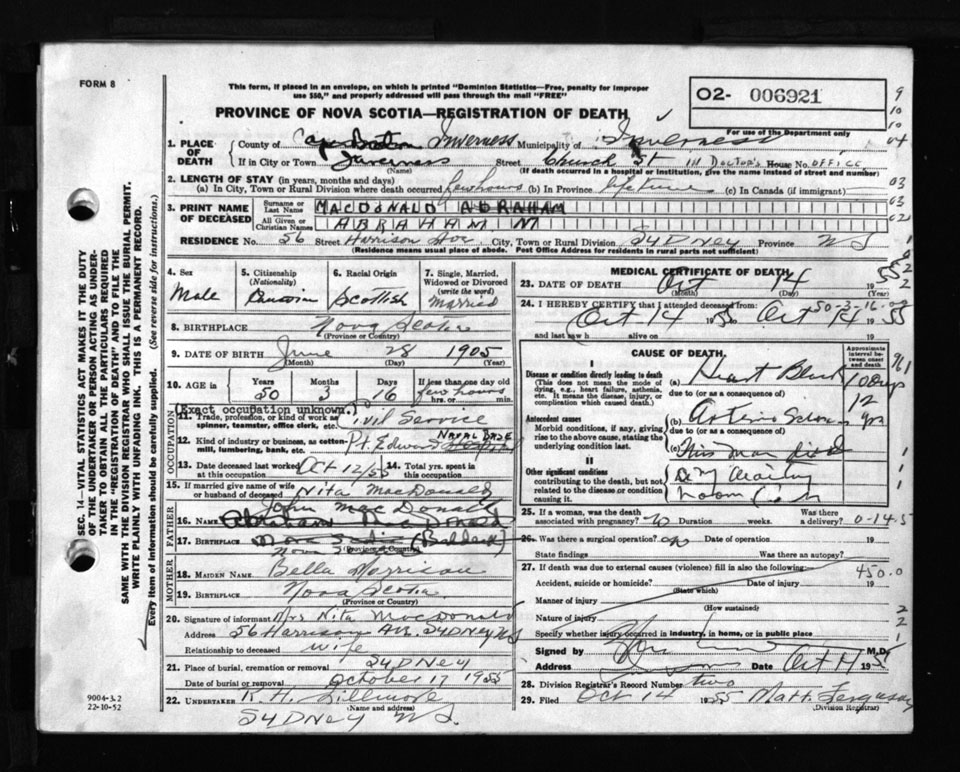 FORM 8
This form, if placed in an envelope, on which is printed "Dominion Statistics—Free, penalty for improper
use $50," and properly addressed will pass through the mail "FREE"
PROVINCE OF NOVA SCOTIA—REGISTRATION OF DEATH
O2- 006921
For use of the Department only
1. PLACE OF DEATH
County of Cape Breton Inverness Municipality of Inverness
If in City or Town Inverness Street Church St in Doctor's House No. OFFICE
(Name) (If death occurred in a hospital or institution, give the name instead of street and number)
2. LENGTH OF STAY (in years, months and days)
(a) In City, Town or Rural Division where death occurred few hours (b) In Province life time (c) In Canada (if immigrant)
3. PRINT NAME OF DECEASED
Surname or Last Name MACDONALD ABRAHAM
All Given or Christian Names ABRAHAM M
RESIDENCE No. 56 Street Harrison City, Town or Rural Division SYDNey Province N S
(Residence means usual place of abode. Post Office Address for residents in rural parts not sufficient)
4. Sex
Male
5. Citizenship (Nationality)
6. Racial Origin
Scottish
7. Single, Married, Widowed or Divorced (write the word)
Married
8. BIRTHPLACE Nova Scotia
(Province or Country)
9. DATE OF BIRTH June 28 1905
(Month) (Day) (Year)
10. AGE in
Years 50
Months 3
Days 16
If less than one day old
few hours
hrs. or min.
OCCUPATION
Exact occupation unknown.
11. Trade, profession, or kind of work, as spinner, teamster, office clerk, etc. Civil Service
12. Kind of industry or business, as cotton-mill, lumbering, bank, etc. Pt. Edward NAVAL BASE
13. Date deceased last worked at this occupation Oct 12/55
14. Total yrs. spent in this occupation
15. If married give name of wife or husband of deceased Nita MacDonald
FATHER
John MacDonald
16. Name Abraham MacDonald
17. Birthplace Nova Scotia (Baddeck)
Nova Scotia
(Province or Country)
MOTHER
18. MAIDEN NAME Bella Morrison
19. BIRTHPLACE Nova Scotia
(Province or Country)
20. Signature of informant Mrs Nita MacDonald
Address 56 Harrison Ave. SYDNEY NS
Relationship to deceased wife
21. Place of burial, cremation or removal SYDNey
Date of burial or removal October 17 1955
22. UNDERTAKER R. H. Fillmore
(Name and address)
SYDNey N S.
MEDICAL CERTIFICATE OF DEATH
23. DATE OF DEATH Oct 14 1955
(Month) (Day) (Year)
24. I HEREBY CERTIFY that I attended deceased from:
50-3-16
Oct 14 1955 Oct 14 1955
and last saw h alive on 19
CAUSE OF DEATH.
Approximate interval between onset and death
I
Disease or condition directly leading to death
(This does not mean the mode of dying, e.g., heart failure, asthenia, etc. It means the disease, injury, or complication which caused death.)
(a) Heart Block 10 days
due to (or as a consequence of)
Antecedent causes
Morbid conditions, if any, giving rise to the above cause, stating the underlying condition last.
(b) Arterio Scler 12 yrs
due to (or as a consequence of)
(c)
II
Other significant conditions
contributing to the death, but not related to the disease or condition causing it.
25. If a woman, was the death associated with pregnancy? Duration weeks. Was there a delivery? 0-14-5
26. Was there a surgical operation? Date of operation 19
State findings Was there an autopsy?
27. If death was due to external causes (violence) fill in also the following: 450.0
Accident, suicide or homicide? Date of injury 19
(State which)
Manner of injury
(How sustained)
Nature of injury
Specify whether injury occurred in industry, in home, or in public place
Signed by M.D.
Address Date Oct 14 1955
28. Division Registrar's Record Number two
29. Filed Oct 14 1955 Matt. Ferguson
(Division Registrar)
SEC. 14—VITAL STATISTICS ACT MAKES IT THE DUTY
OF THE UNDERTAKER OR PERSON ACTING AS UNDER-
TAKER TO OBTAIN ALL THE PARTICULARS REQUIRED
IN THE "REGISTRATION OF DEATH" AND TO FILE THE
SAME WITH THE DIVISION REGISTRAR WHO SHALL ISSUE THE BURIAL PERMIT.
WRITE PLAINLY WITH UNFADING INK. THIS IS A PERMANENT RECORD.
Every item of information should be carefully supplied. (See reverse side for instructions.)
9004-3.2
22-10-52